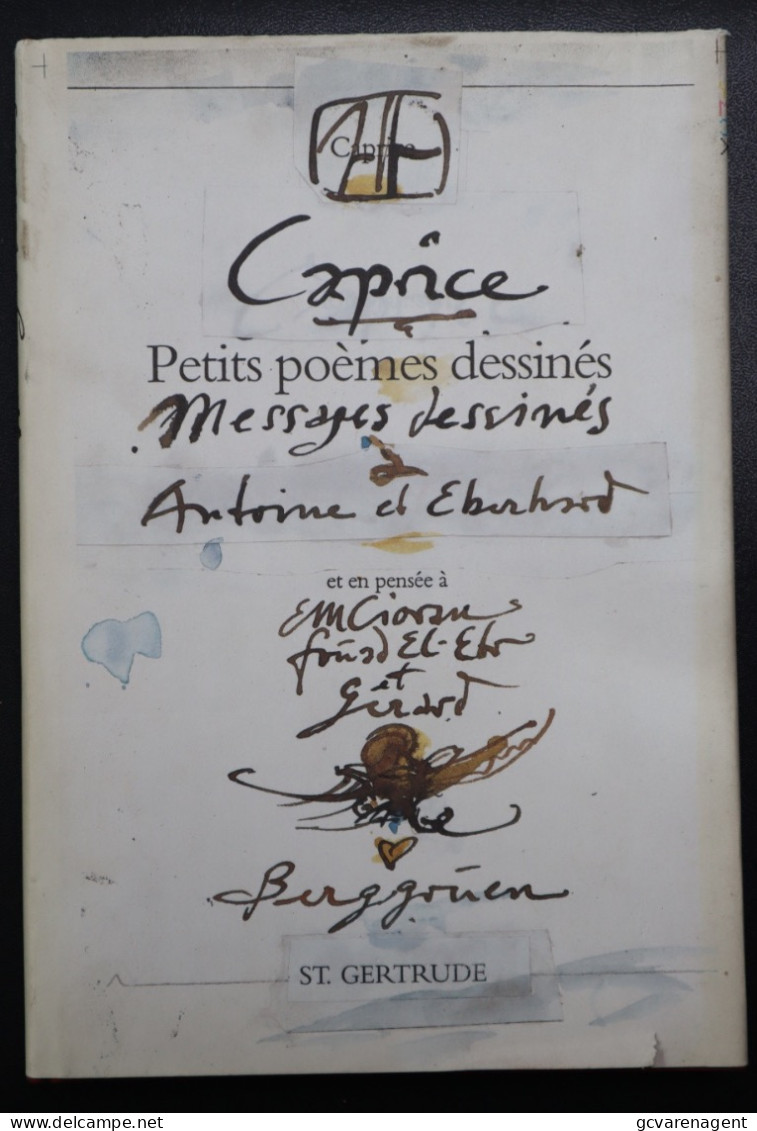 Caprice
Caprice
Petits poèmes dessinés
Messages dessinés
à
Antoine et Eberhard
et en pensée à
EMCioran
foüad El-Etr
et
Gérard
Berggrüen
ST. GERTRUDE
www.delcampe.net
gcvarenagent